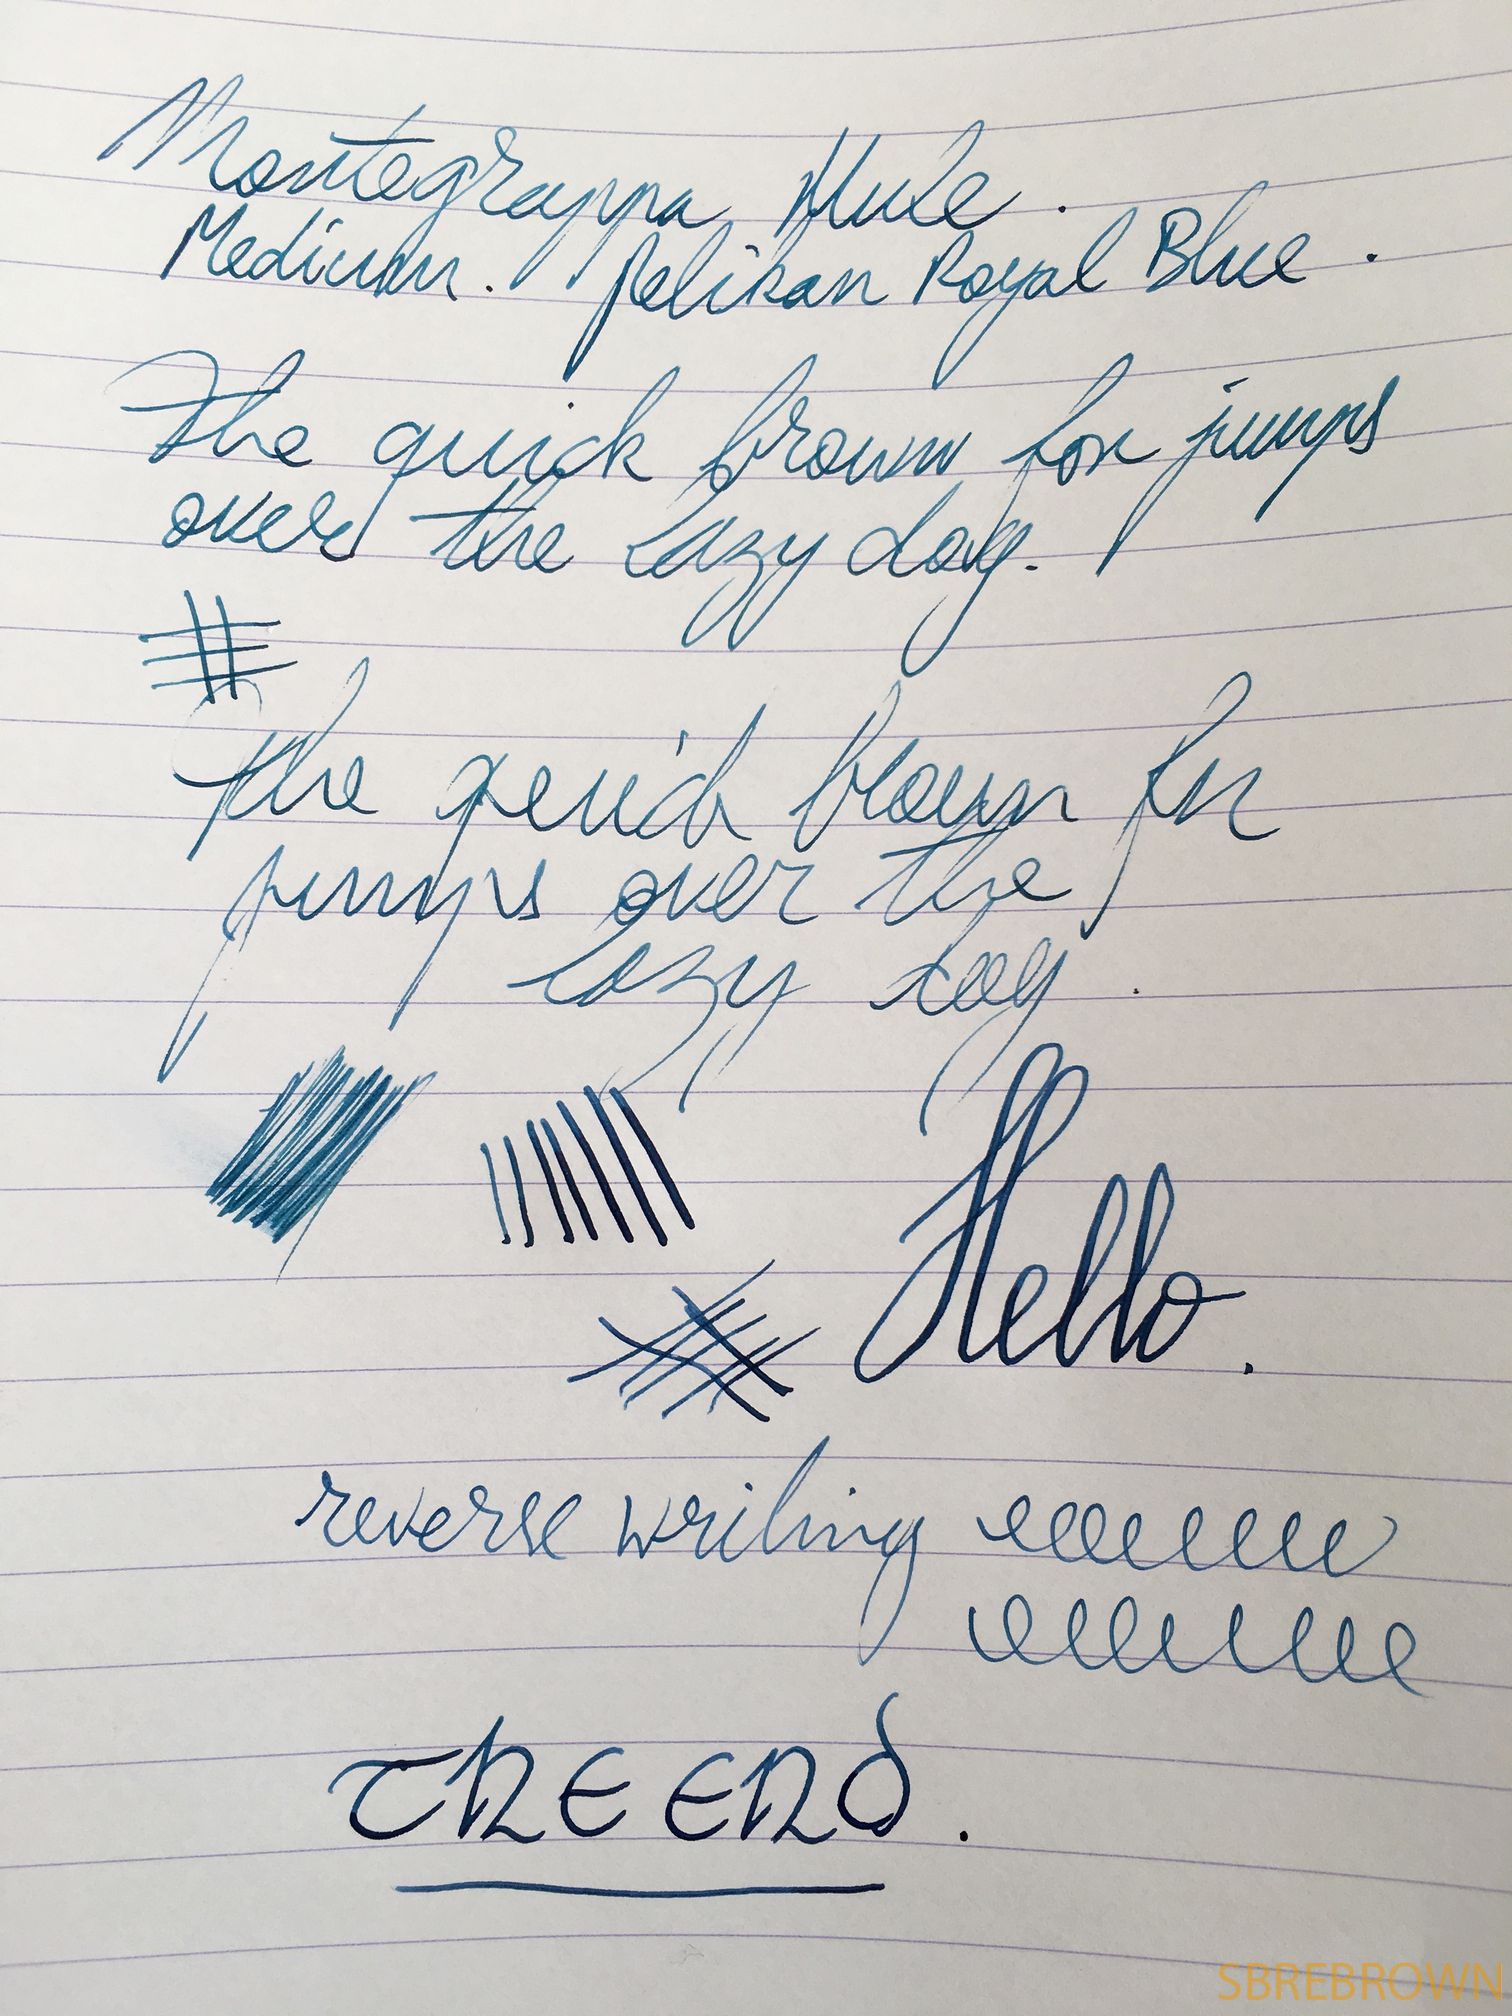 Montegrappa Mule.
Medium. Pelikan Royal Blue.
The quick brown fox jumps
over the lazy dog.
the quick brown fox
jumps over the
lazy dog.
Hello.
reverse writing
THE END.
SBREBROWN